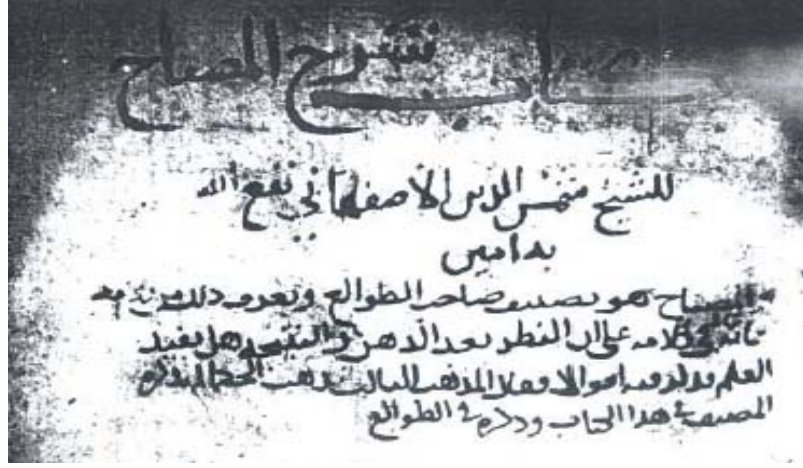 كتاب شرح المصباح
للشيخ شمس الدين الاصفهاني نفع الله
به امين
المصباح هو تصنيف صاحب الطوالع ويعرف ذلك من
كلامه على ان النظر يعد الذهن والنتيجة هل يفيد
العلم وذكر فيه اقوالا وقال المذهب الثالث مذهب
المصنف في هذا الكتاب وذكره في الطوالع